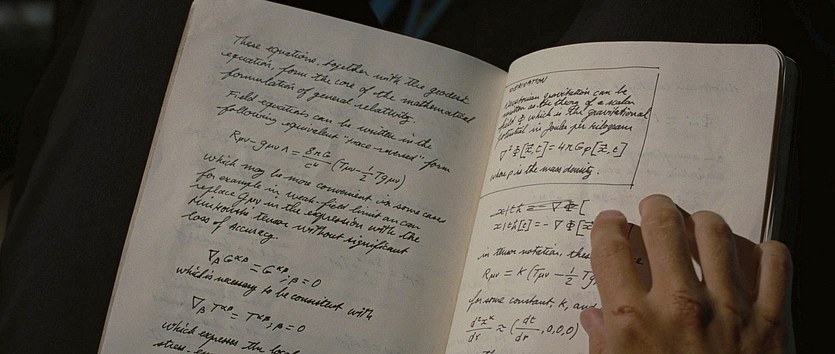 These equations, together with the geodesic
equation, form the core of the mathematical
formulation of general relativity.
Field equations can be written in the
following equivalent "trace-reversed" form
Rμν - gμν Λ = 8πG/c⁴ (Tμν - 1/2 Tgμν)
which may be more convenient in some cases
for example in weak-field limit an can
replace gμν in the expression with the
Minkowski tensor without significant
loss of accuracy.
∇β G^αβ = G^αβ ;β = 0
which is necessary to be consistent with
∇β T^αβ = T^αβ ;β = 0
which expresses the local
stress-
DERIVATION
Newtonian gravitation can be
written as the theory of a scalar
field Φ which is the gravitational
potential in joules per kilogram
∇²Φ[x⃗,t] = 4πGρ[x⃗,t]
where ρ is the mass density.
[t] = -∇Φ[
in tensor notation, these
Rμν = K (Tμν - 1/2 Tg
for some constant, K, and
≈ (dt/dτ, 0, 0, 0)